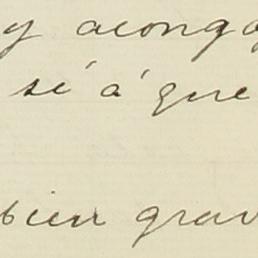 y acongo
sé á que
bien grav